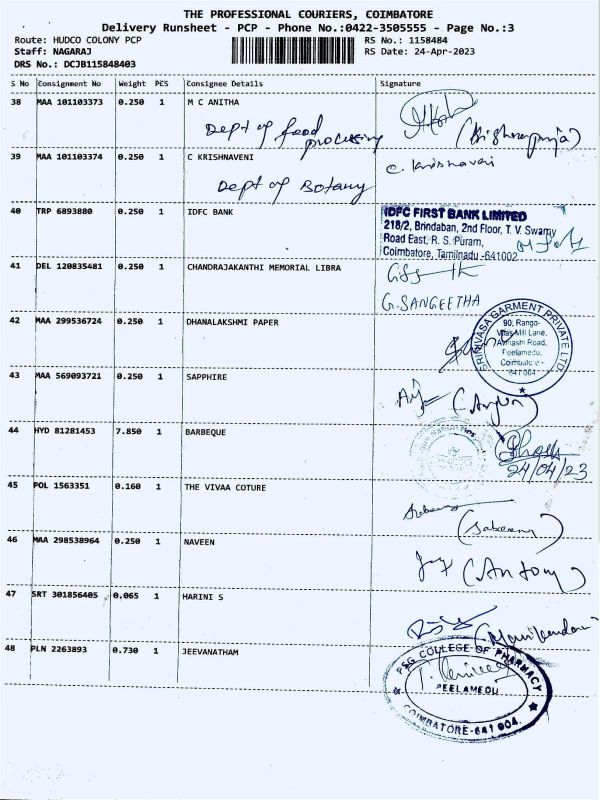 THE PROFESSIONAL COURIERS, COIMBATORE
Delivery Runsheet - PCP - Phone No.:0422-3505555 - Page No.:3
Route: HUDCO COLONY PCP
RS No.: 1158484
Staff: NAGARAJ
RS Date: 24-Apr-2023
DRS No.: DCJB115848403
S No Consignment No Weight PCS Consignee Details Signature
38 MAA 101103373 0.250 1 M C ANITHA
Dept of food
processing
(Krishnapriya)
39 MAA 101103374 0.250 1 C KRISHNAVENI
C. Krishnaveni
Dept of Botany
40 TRP 6893880 0.250 1 IDFC BANK
IDFC FIRST BANK LIMITED
218/2, Brindaban, 2nd Floor, T. V. Swamy
Road East, R. S. Puram,
Coimbatore, Tamilnadu -641002
41 DEL 120835481 0.250 1 CHANDRAJAKANTHI MEMORIAL LIBRA
G.SANGEETHA
42 MAA 299536724 0.250 1 DHANALAKSHMI PAPER
SRINIVASA GARMENT PRIVATE LTD.
90, Ranga-
Vilas Mill Lane,
Avinashi Road,
Peelamedu,
Coimbatore -
641 004
43 MAA 569093721 0.250 1 SAPPHIRE
(Arjun)
44 HYD 81281453 7.850 1 BARBEQUE
24/04/23
45 POL 1563351 0.160 1 THE VIVAA COTURE
(Sabeena)
46 MAA 298538964 0.250 1 NAVEEN
(Antony)
47 SRT 301856405 0.065 1 HARINI S
(Manikandan)
48 PLN 2263893 0.730 1 JEEVANATHAM
PSG COLLEGE OF PHARMACY
PEELAMEDU
COIMBATORE-641 004.